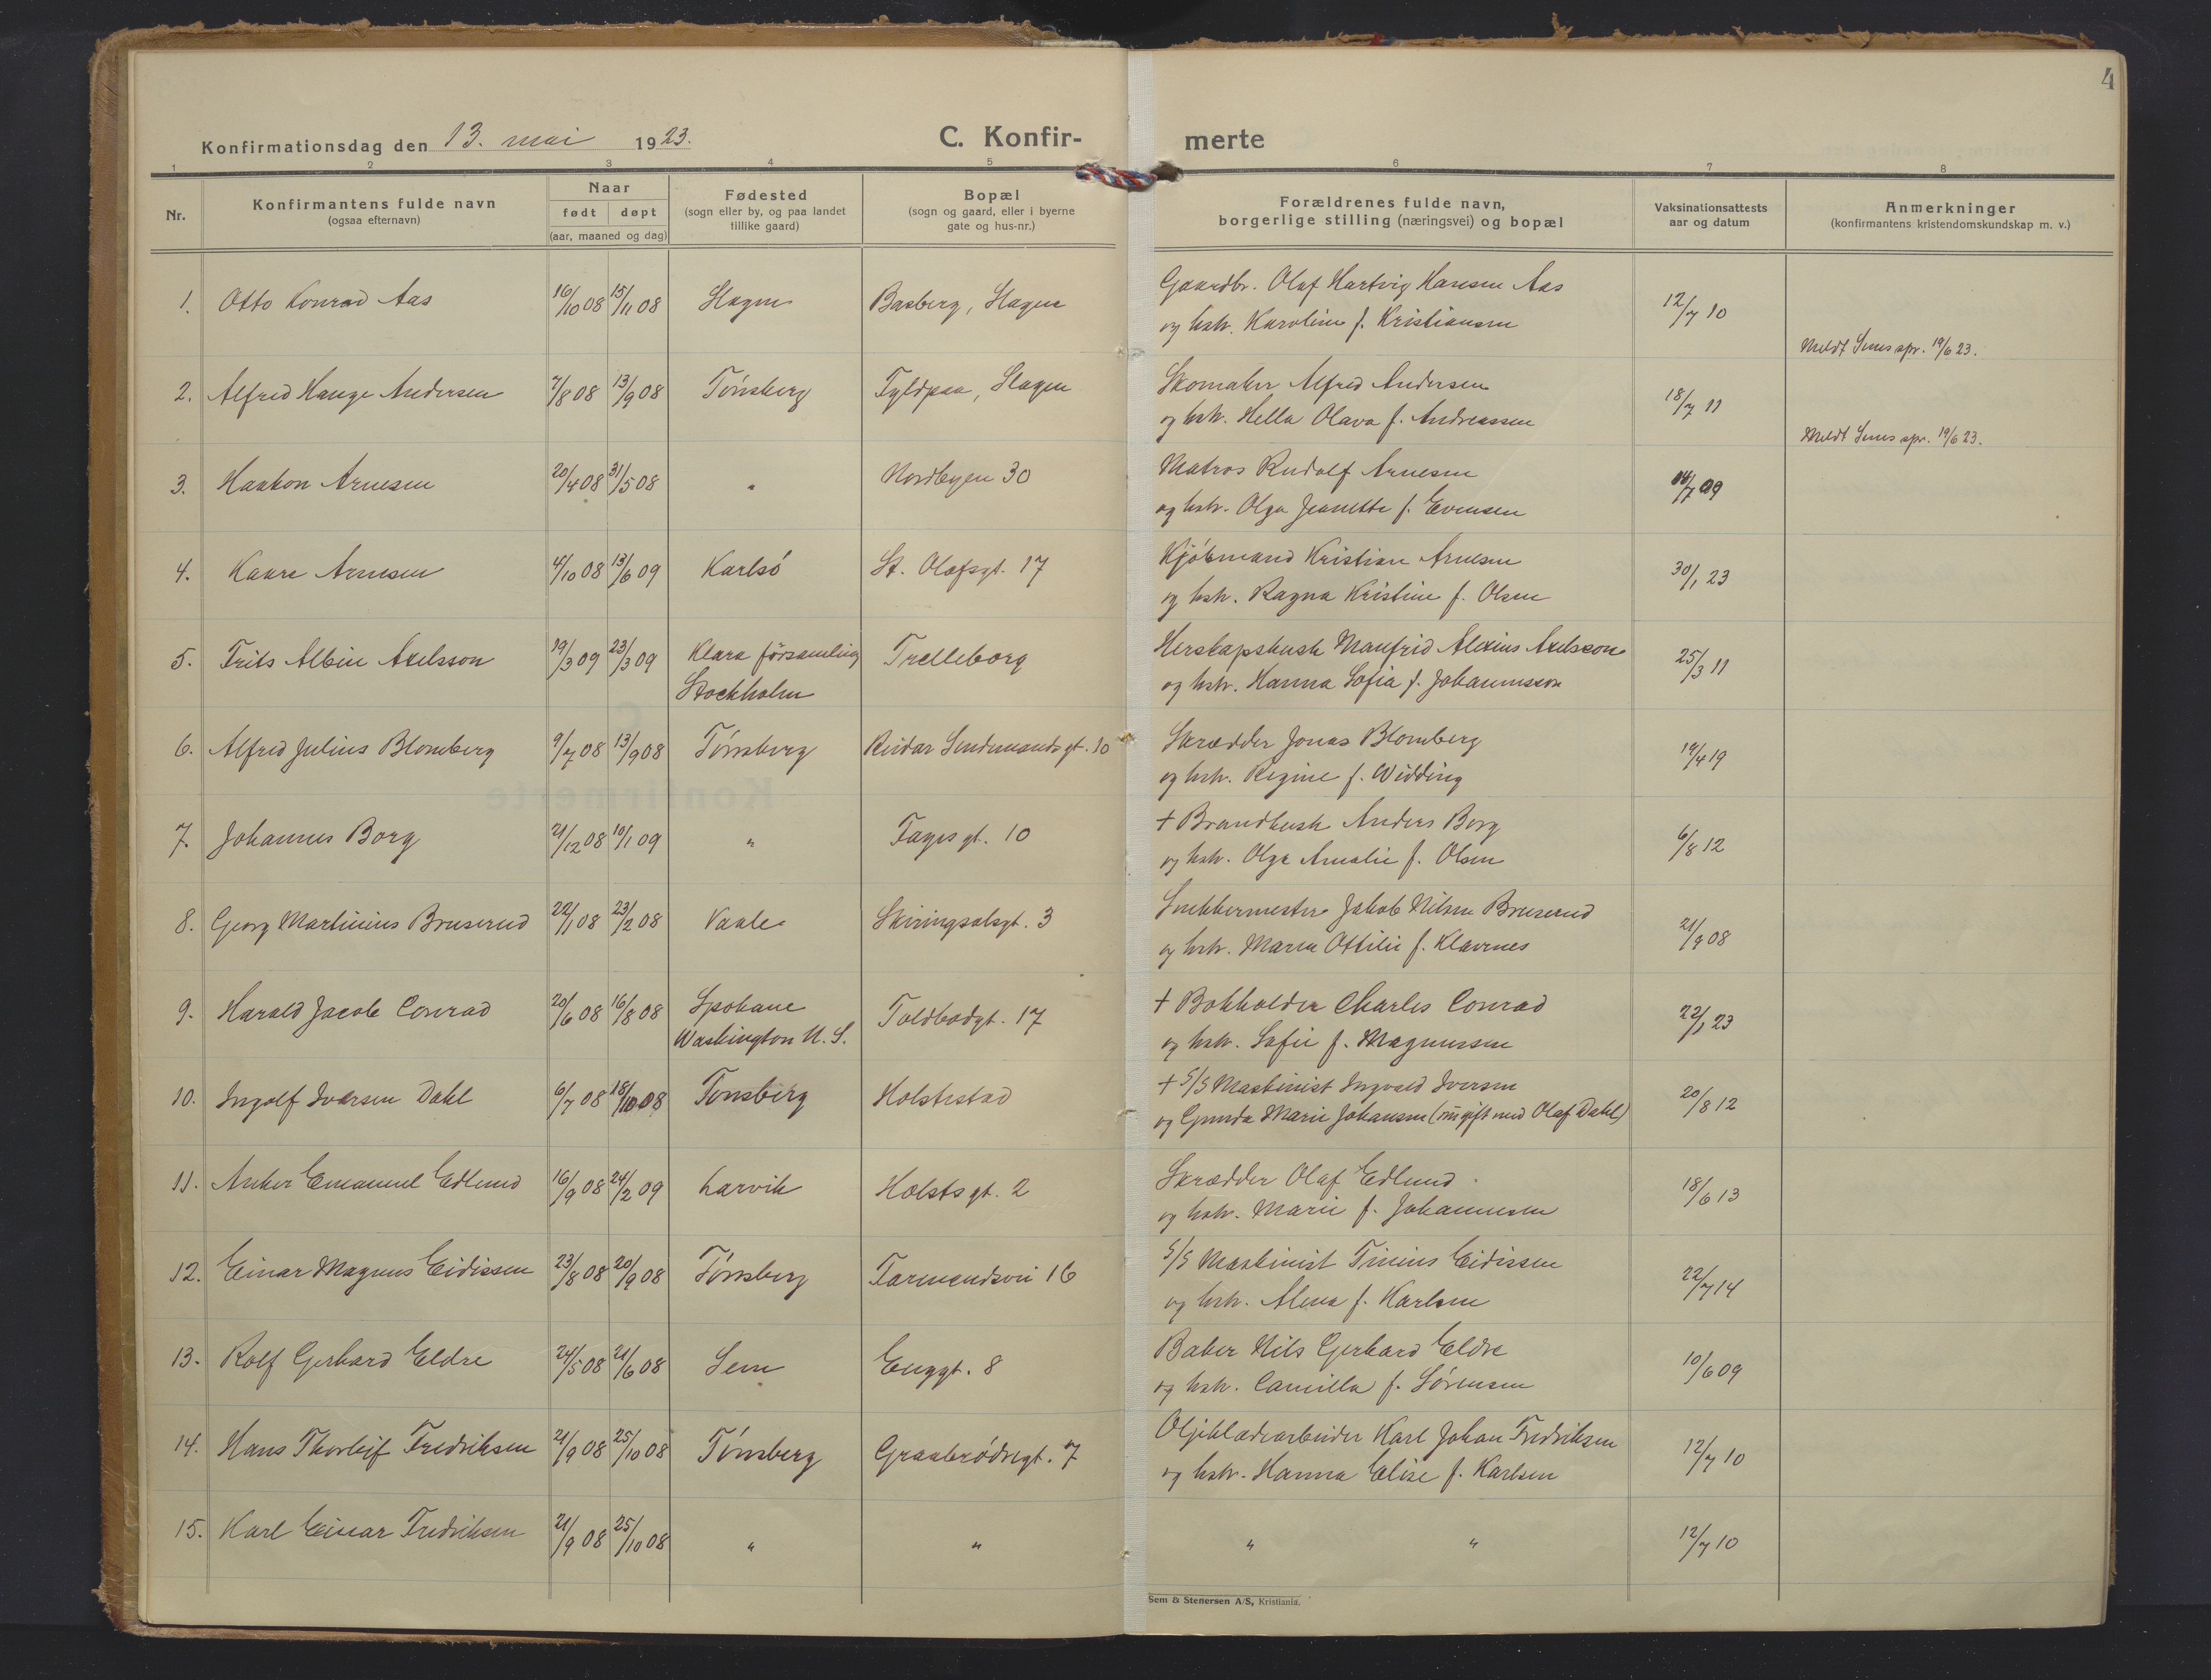 4
Konfirmationsdag den 13. mai 1923.
C. Konfir-
merte
1 2 3 4 5 6 7 8
Nr.
Konfirmantens fulde navn
(ogsaa efternavn)
Naar
født døpt
(aar, maaned og dag)
Fødested
(sogn eller by, og paa landet
tillike gaard)
Bopæl
(sogn og gaard, eller i byerne
gate og hus-nr.)
Forældrenes fulde navn,
borgerlige stilling (næringsvei) og bopæl
Vaksinationsattests
aar og datum
Anmerkninger
(konfirmantens kristendomskundskap m. v.)
1. Otto Konrad Aas 16/10 08 15/11 08 Slagen Basberg, Slagen
Gaardbr. Olaf Hartvig Hansen Aas
og hstr. Karoline f. Kristiansen
12/7 10
Meldt Sems spr. 19/6 23.
2. Alfred Hauge Andersen 7/8 08 13/9 08 Tønsberg Fyldpaa, Slagen
Skomaker Alfred Andersen
og hstr. Hella Olava f. Andreassen
18/7 11
Meldt Sems spr. 19/6 23.
3. Haakon Arnesen 20/4 08 31/5 08 " Nordbyen 30
Matros Rudolf Arnesen
og hstr. Olga Jeanette f. Evensen
/7 09
4. Kaare Arnesen 4/10 08 13/6 09 Karlsö St. Olafsgt. 17
Kjøbmand Kristian Arnesen
og hstr. Ragna Kristine f. Olsen
30/1 23
5. Frits Albin Axelsson 19/3 09 23/3 09 Klara församling
Stockholm
Trelleborg
Herskapskusk Manfrid Alexius Axelsson
og hstr. Hanna Sofia f. Johannsson
25/3 11
6. Alfred Julius Blomberg 9/7 08 13/9 08 Tønsberg Reidar Sendemands gt. 10
Skrædder Jonas Blomberg
og hstr. Regine f. Widding
19/4 19
7. Johannes Borg 21/12 08 10/1 09 " Fayes gt. 10
+ Brandkusk Anders Borg
og hstr. Olga Amalie f. Olsen
6/8 12
8. Georg Martinius Bruserud 22/1 08 23/2 08 Vaale Skiringsalsgt. 3
Snekkermester Jakob Nilsen Bruserud
og hstr. Maren Ottilie f. Klavenes
21/9 08
9. Harald Jacob Conrad 20/6 08 16/8 08 Spokane
Washington U. S.
Toldbodgt. 17
+ Bokholder Charles Conrad
og hstr. Sofie f. Magnussen
22/1 23
10. Ingolf Iversen Dahl 6/7 08 18/10 08 Tønsberg Holstestad
+ S/S Maskinist Ingvald Iversen
og Gunda Marie Johansen (nu gift med Olaf Dahl)
20/8 12
11. Anker Emanuel Edlund 16/9 08 24/2 09 Larvik Holsts gt. 2
Skrædder Olaf Edlund
og hstr. Marie f. Johannesen
18/6 13
12. Einar Magnus Eidissen 23/8 08 20/9 08 Tønsberg Farmandsvei 16
S/S Maskinist Tinius Eidissen
og hstr. Alma f. Karlsen
22/7 14
13. Rolf Gerhard Eldre 24/5 08 21/6 08 Sem Enggt. 8
Baker Nils Gerhard Eldre
og hstr. Camilla f. Sørensen
10/6 09
14. Hans Thorleif Fredriksen 21/9 08 25/10 08 Tønsberg Graabrødregt. 7
Oljeklædearbeider Karl Johan Fredriksen
og hstr. Hanna Elise f. Karlsen
12/7 10
15. Karl Einar Fredriksen 21/9 08 25/10 08 " " " " 12/7 10
Sem & Stenersen A/S, Kristiania.